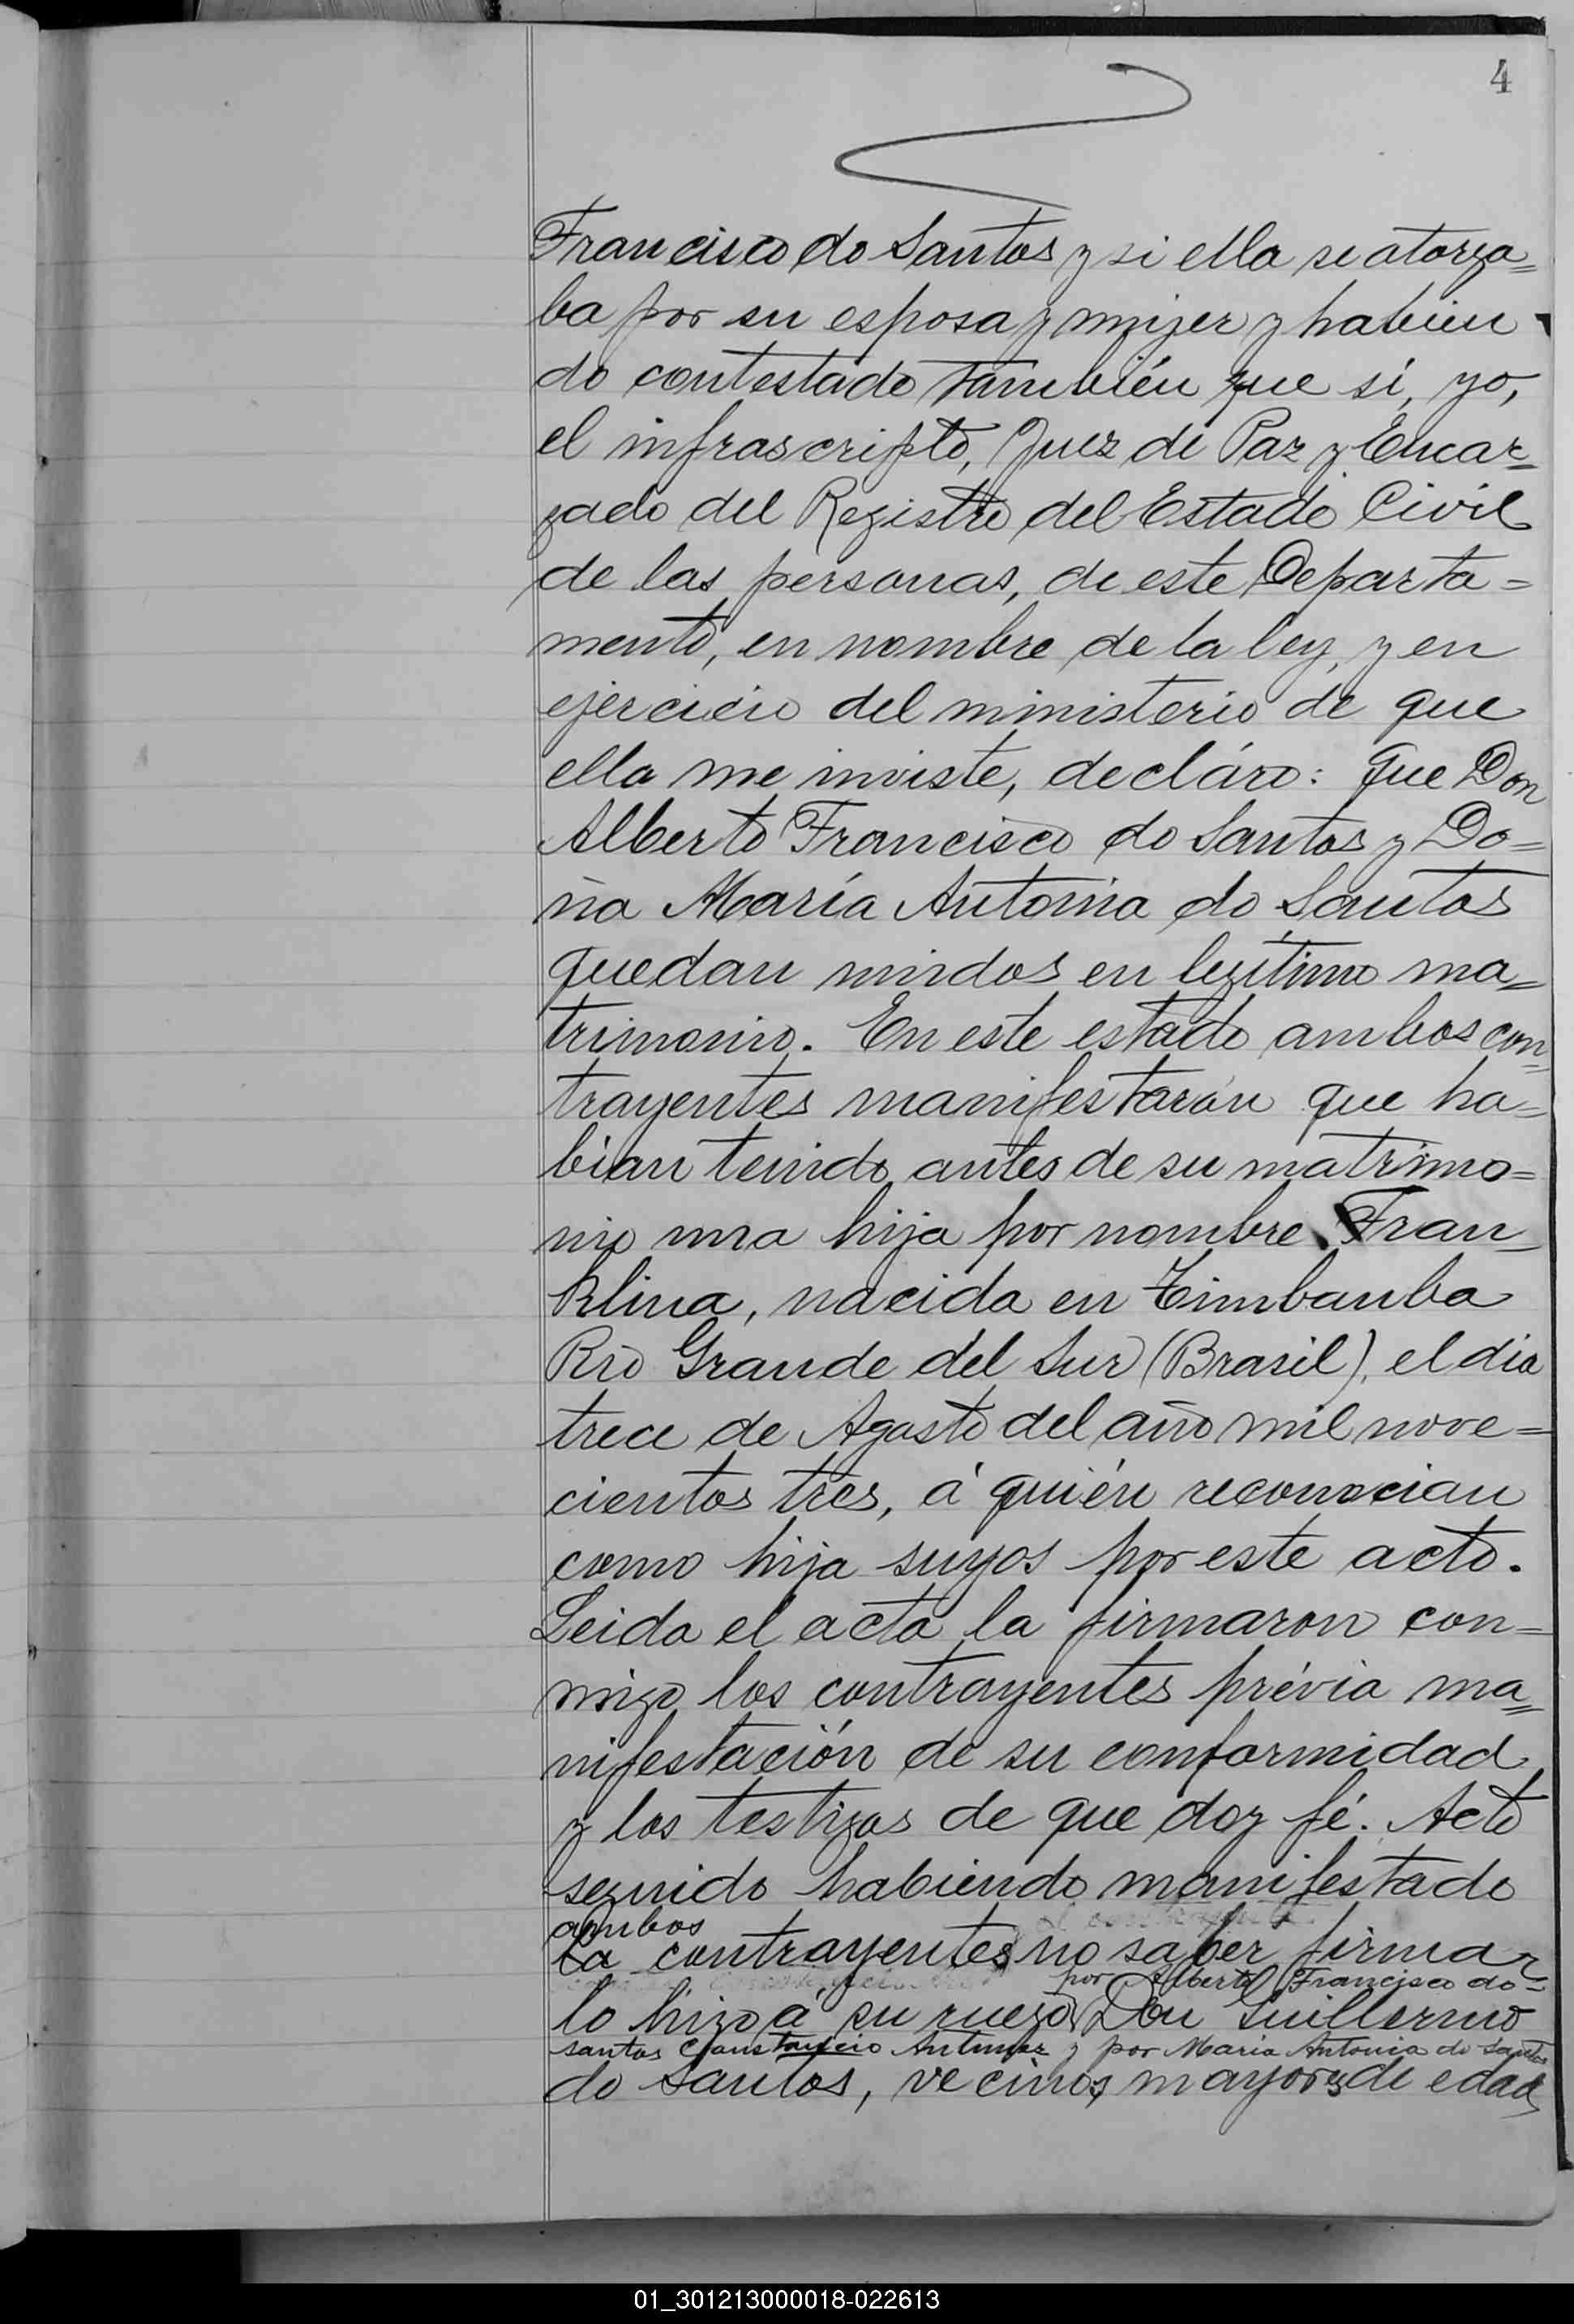 4
Francisco do Santos y si ella se otorga=
ba por su esposa y mujer y habien
do contestado también que sí, yo,
el infrascripto, Juez de Paz y Encar=
gado del Registro del Estado Civil
de las personas, de este Departa=
mento, en nombre de la ley, y en
ejercicio del ministerio de que
ella me inviste, decláro: que Don
Alberto Francisco do Santos y Do=
ña María Antonia do Santos
quedan unidos en legítimo ma=
trimonio. En este estado ambos con=
trayentes manifestarón que ha=
bian tenido antes de su matrimo=
nio una hija por nombre Fran=
klina, nacida en Timbauba
Rio Grande del Sur (Brasil), el dia
trece de Agosto del año mil nove=
cientos tres, á quién reconocian
como hija suyos por este acto.
Leida el acta la firmaron con=
migo los contrayentes prévia ma=
nifestación de su conformidad
y los testigos de que doy fé. Acto
seguido habiendo manifestado
ambos
La contrayentes no saber firmar
por Alberto Francisco do=
lo hizo á su ruego Don Guillermo
santos Constancio Antunez y por Maria Antonia do Santos
do Santos, vecinos, mayores de edad
01_301213000018-022613